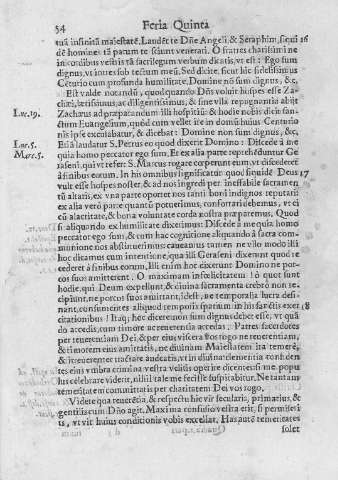 54 Feria Quinta
tuā infinitā maiestatē. Laudēt te Dñe Angeli & Seraphim, siqui 16
dē homines tā parum te sciunt venerari. O fratres charissimi ne
in cordibus vestris tā sacrilegum verbum dicatis, vt est: Ego sum
dignus, vt intres sub tectum meū. Sed dicite, sicut hic fidelissimus
Cēturio cum profunda humilitate. Domine nō sum dignus, &c,
Est valde notandū, quod quando Dñs voluit hospes esse Za-
chæi, lætissimus, ac diligentissimus, & sine vlla repugnantia abijt
Luc. 19. Zachæus ad præparandum illi hospitiū & hodie nobis dicit san-
ctum Euangelium, quod cum vellet ire in domū huius Centurio
nis ipse excusabatur, & dicebat: Domine non sum dignus, &c,
Luc. 5. Eū laudatur S. Petrus eo quod dixerit Domino: Discede à me
Marc. 5. quia homo peccator ego sum. Et ex alia parte reprehēduntur Ge
raseni, qui vt refert S. Marcus rogare corperunt eum, vt discederet
à finibus eorum. In his omnibus significatur quod siquidē Deus 17
vult esse hospes noster, & ad nos ingredi per ineffabile sacramen
tū altaris, ex vna parte oportet nos tanti boni indignos reputari
ex alia verò parte quantū poterimus, confortari debemus, vt cū
eū alacritate, & bona voluntate corda nostra præparemus. Quod
si aliquando ex humilitate dixerimus: Discede à me quia homo
peccator ego sum, & cum hac cognitione aliquando à sacra com-
munione nos abstinuerimus: caueamus tamen ne vllo modo illi
hoc dicamus cum intentione, qua illi Geraseni dixerunt quod re
cederet à finibus eorum, Illi enim hoc dixerunt Domino ne por-
cos suos amitterent. O maximam infœlicitatem! ô quot sunt
hodie, qui Deum expellunt, & diuina sacramenta crebrò non re-
cipiunt, ne porcos suos amittant, idest, ne temporalia lucra desi-
nant, consumentes aliquod tempoxis sparium in his sanctis exer 18
citationibus! Itaq; hoc dicere non sum dignus debet esse, vt quā
do accedis, cum timore ac reuerentia accedas: Patres sacerdotes
per reuerentiam Dei, & per eius viscera vos rogo ne reuerentiam,
& timorem eius amittatis, ne diuinam Maiestatem ita temerè,
& irreuerenter tractare audeatis, vt in diuina clementia confiden
tes eius vmbra crimina vestra velitis operire dicentes si me popu
lus celebrare viderit, nihil tale me fecisse suspicabitur. Ne tantam
temeritatem committatis per charitatem Dei vos rogo,
Videte qua reuerētia, & respectu hic vir secularis, primarius, &
gentilis cum Dño agit. Maxima confusio vestra erit, si permiseri
tis, vt vir huius conditionis vobis excellat. Has autē temeritates
solet